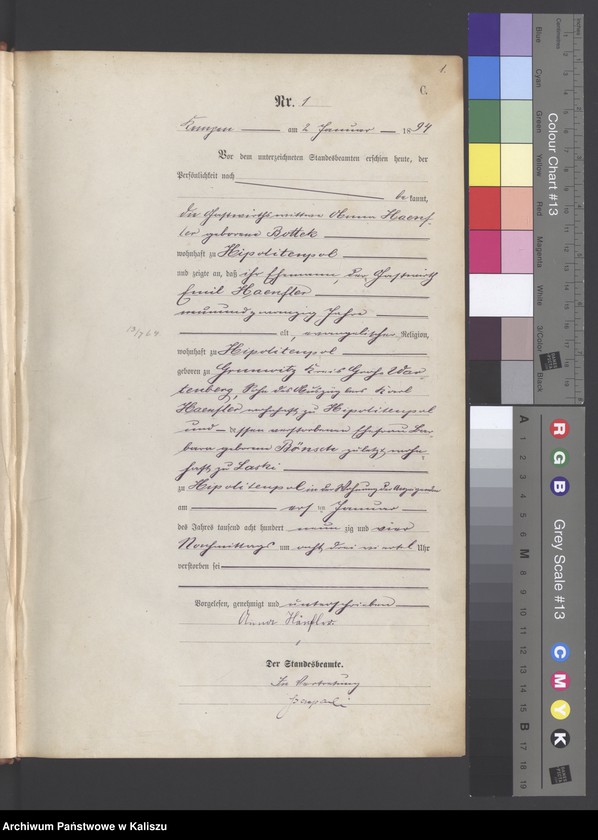 1.
C.
Nr. 1
Kempen am 2 Januar 1894
Vor dem unterzeichneten Standesbeamten erschien heute, der
Persönlichkeit nach
be kannt,
die Gastwirthswittwe Anna Haenf-
ler geborene Bottek
wohnhaft zu Hipolitenpol
und zeigte an, daß ihr Ehemann, der Gastwirth
Emil Haenfler
neunundzwanzig Jahre
alt, evangelischer Religion,
wohnhaft zu Hipolitenpol
geboren zu Kreis Groß War-
tenberg, Sohn des Auszüglers Karl
Haenfler wohnhaft zu Hipolitenpol
und dessen verstorbenen Ehefrau Bar-
bara geborene Bönsch zuletzt wohn-
haft zu Laski
zu Hipolitenpol in der Wohnung der Anzeigenden
am ersten Januar
des Jahres tausend acht hundert neun zig und vier
Nachmittags um acht drei viertel Uhr
verstorben sei
Vorgelesen, genehmigt und unterschrieben
Anna Hänfler
Der Standesbeamte.
In Vertretung
Colour Chart #13
Blue
Cyan
Green
Yellow
Red
Magenta
White
3/Color
Black
Centimetres
Inches
Grey Scale #13
R
G
B
C
M
Y
K
A 1 2 3 4 5 6 M 8 9 10 11 12 13 14 15 B 17 18 19
Archiwum Państwowe w Kaliszu